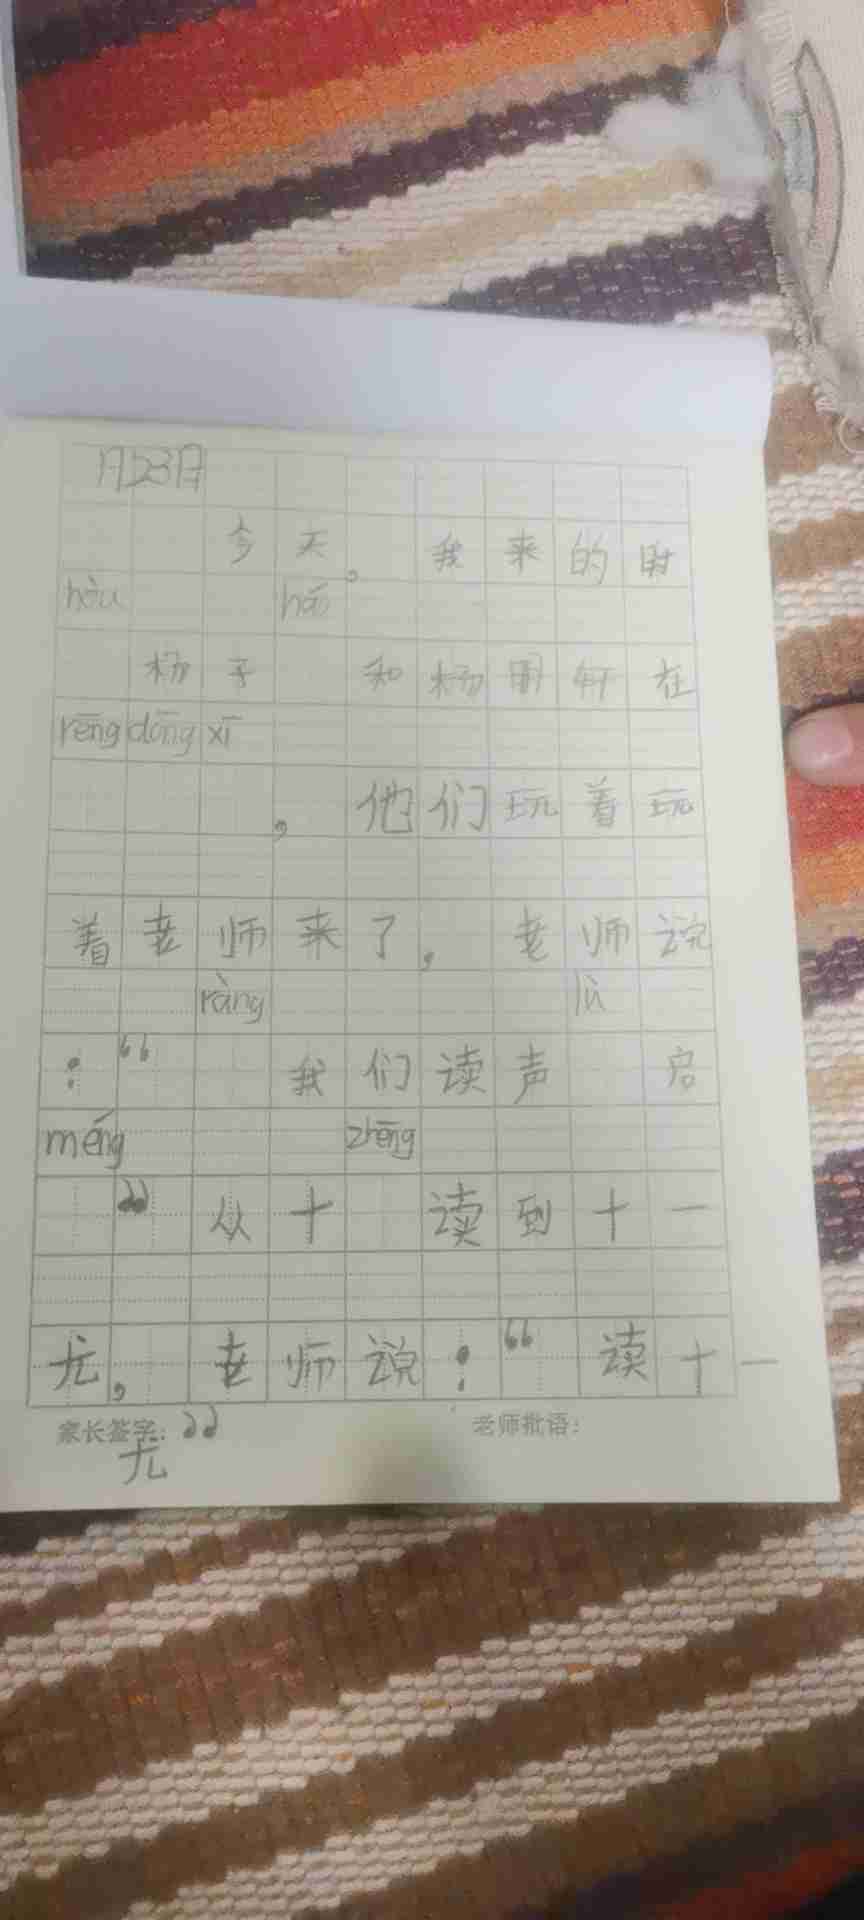 1月23日
今天,我来的时
hòu háo
杨子 和杨明轩在
rēng dōng xī
,他们玩着玩
着老师来了,老师说
ràng lǜ
:“ 我们读声 启
méng zhēng
”从十 读到十一
尤,老师说:“读十一
家长签字: ” 老师批语:
尤